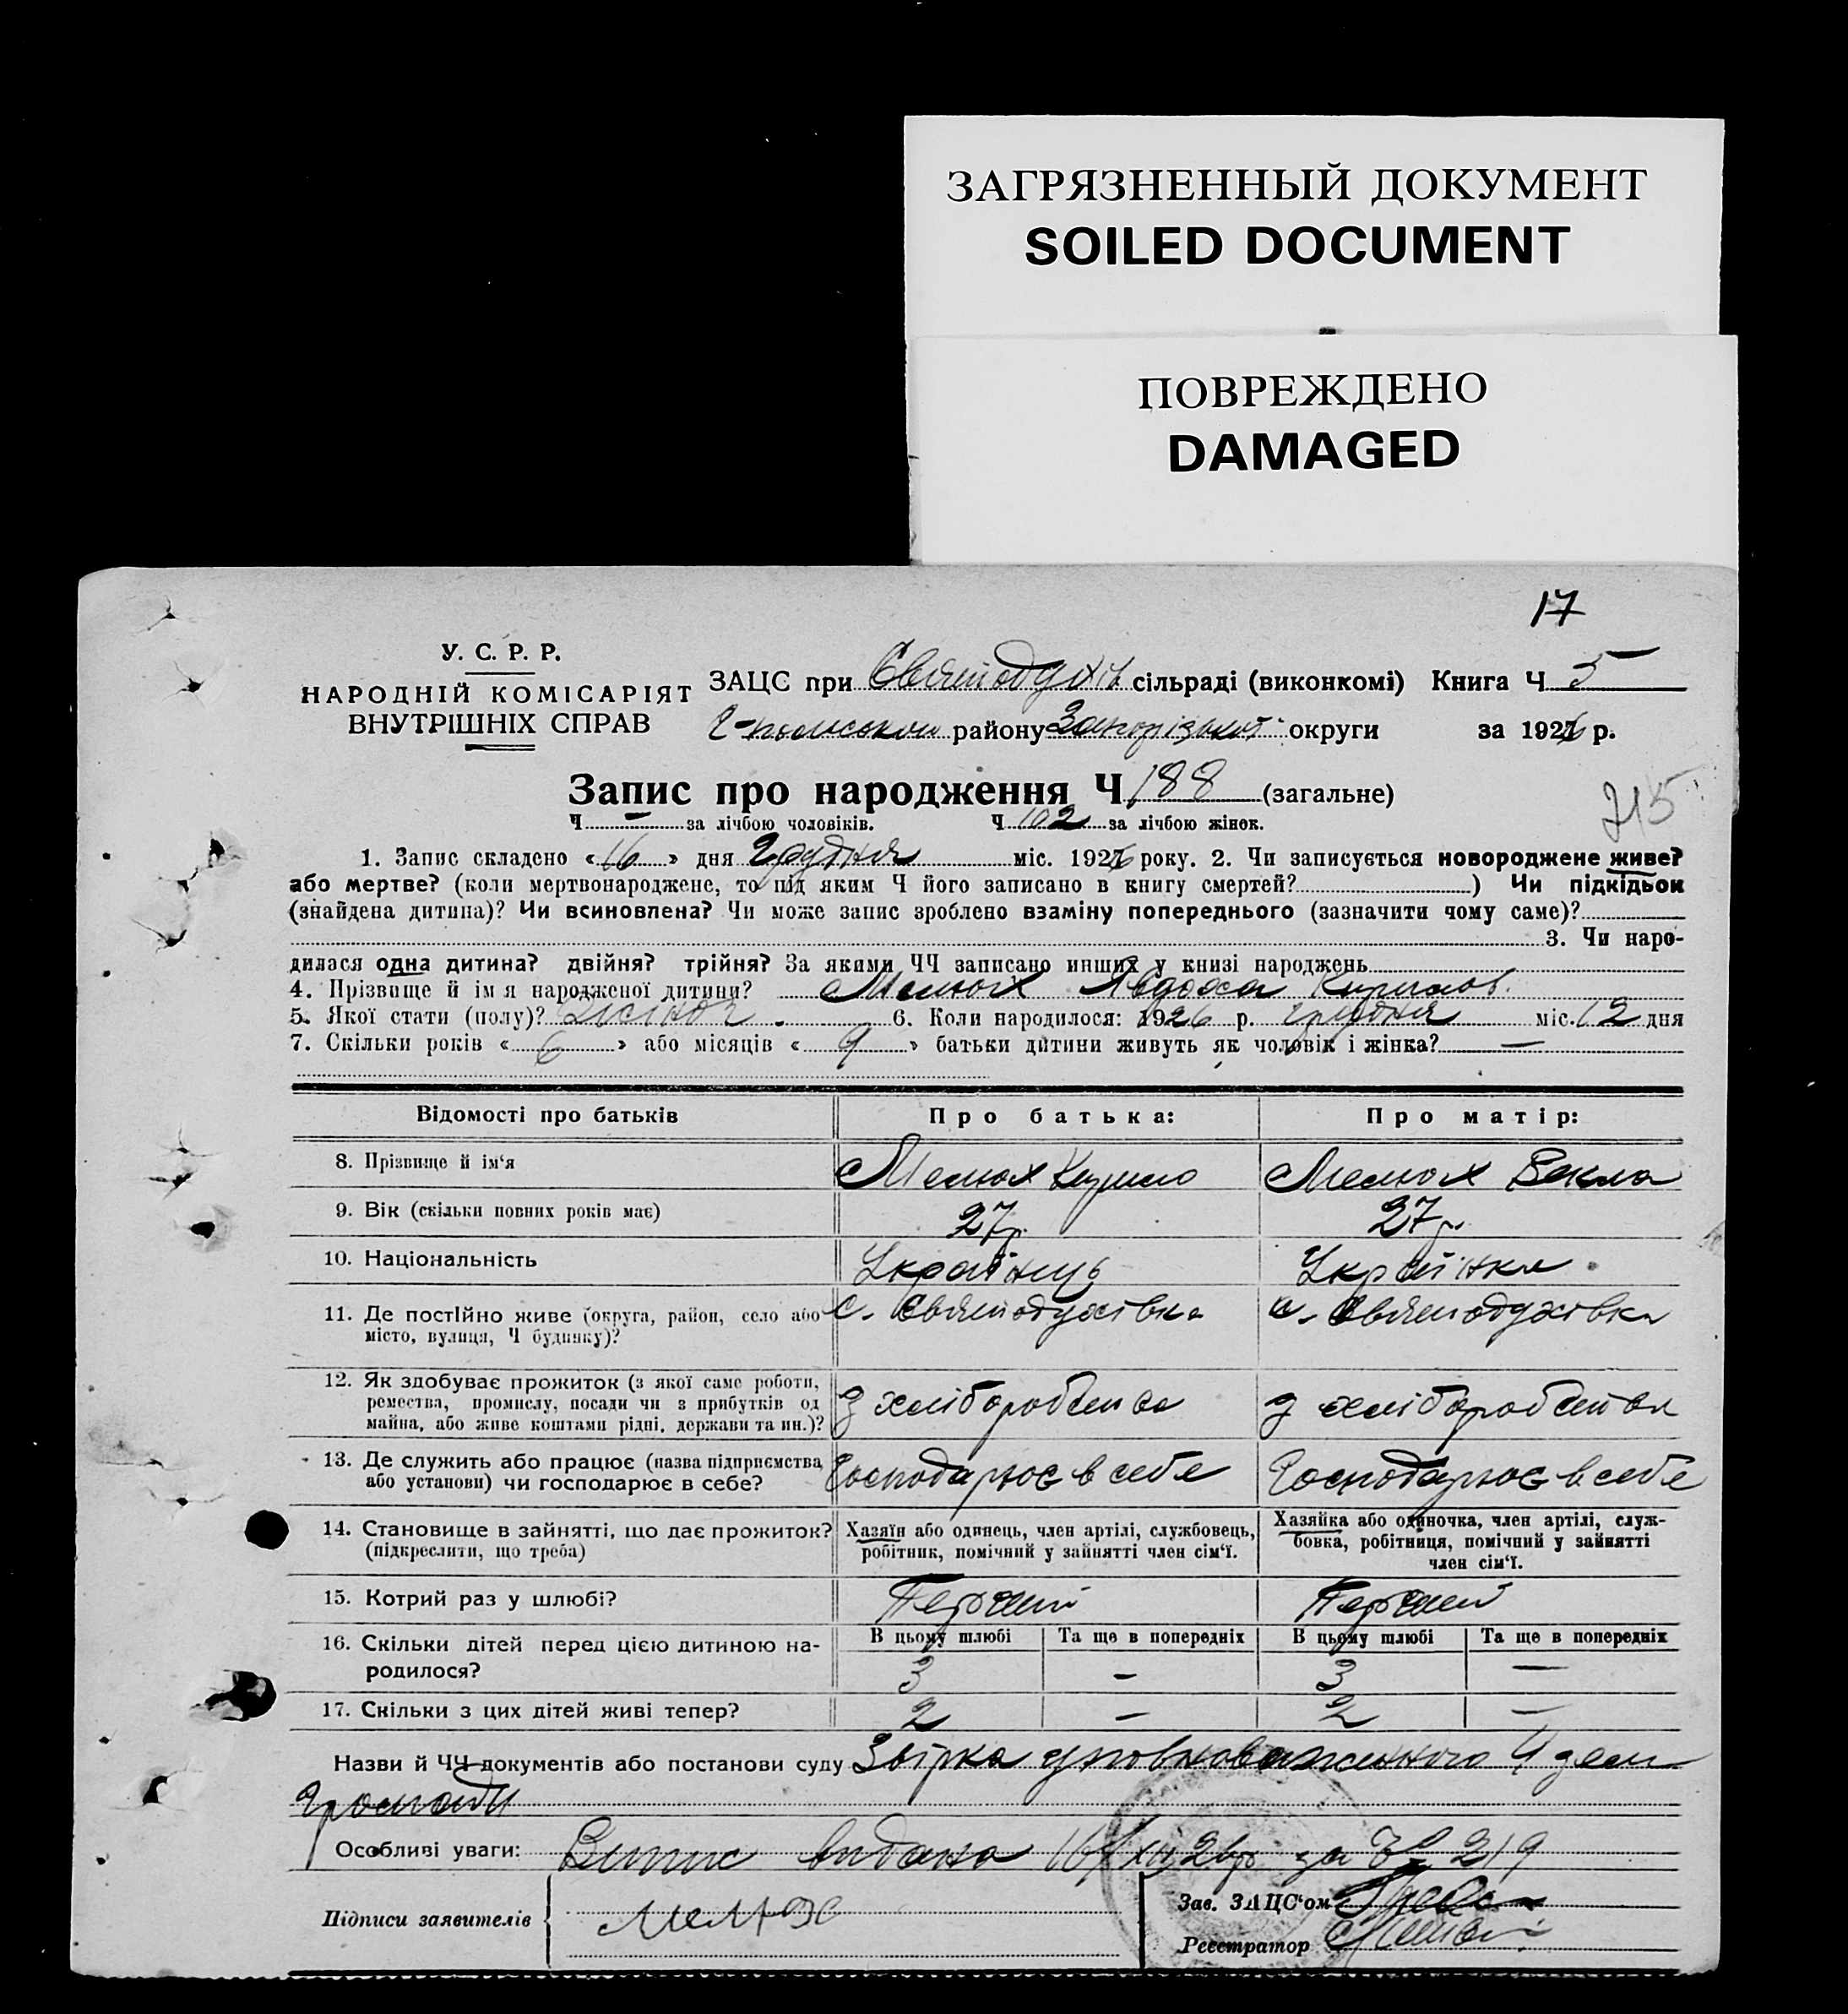 ЗАГРЯЗНЕННЫЙ ДОКУМЕНТ
SOILED DOCUMENT
ПОВРЕЖДЕНО
DAMAGED
17
У. С. Р. Р.
НАРОДНІЙ КОМІСАРІЯТ
ВНУТРІШНІХ СПРАВ
ЗАЦС при Святодухів сільраді (виконкомі) Книга Ч 5
району Запорізької округи за 1926 р.
Запис про народження Ч 188 (загальне)
215
Ч — за лічбою чоловіків. Ч 102 за лічбою жінок.
1. Запис складено « 16 » дня Грудня міс. 1926 року. 2. Чи записується новороджене живе?
або мертве? (коли мертвонароджене, то під яким Ч його записано в книгу смертей? ) Чи підкідьок
(знайдена дитина)? Чи всиновлена? Чи може запис зроблено взаміну попереднього (зазначити чому саме)?
3. Чи наро-
дилася одна дитина? двійня? трійня? За якими ЧЧ записано инших у книзі народжень
4. Прізвище й ім я народженої дитини? Мелюх Явдоха Кирилов.
5. Якої стати (полу)? Жіноч. 6. Коли народилося: 1926 р. грудня міс. 12 дня
7. Скільки років « 6 » або місяців « 9 » батьки дитини живуть як чоловік і жінка? —
Відомості про батьків Про батька: Про матір:
8. Прізвище й ім‘я Мелюх Кирило Мелюх Векла
9. Вік (скільки повних років має) 27р. 27р.
10. Національність Українець Українка
11. Де постійно живе (округа, район, село або с. Святодухівка с. Святодухівка
місто, вулиця, Ч будинку)?
12. Як здобуває прожиток (з якої саме роботи,
ремества, промислу, посади чи з прибутків од З хліборобства з хліборобства
майна, або живе коштами рідні, держави та ин.)?
13. Де служить або працює (назва підприємства Господарює в себе Господарює в себе
або установи) чи господарює в себе?
14. Становище в зайнятті, що дає прожиток? Хазяїн або одинець, член артілі, службовець, Хазяйка або одиночка, член артілі, служ-
(підкреслити, що треба) робітник, помічний у зайнятті член сім‘ї. бовка, робітниця, помічний у зайнятті
член сім‘ї.
15. Котрий раз у шлюбі? Перший Перший
16. Скільки дітей перед цією дитиною на- В цьому шлюбі Та ще в попередніх В цьому шлюбі Та ще в попередніх
родилося? 3 — 3 —
17. Скільки з цих дітей живі тепер? 2 — 2 —
Назви й ЧЧ документів або постанови суду Звірка уповноваженного 4 зем
громади
Особливі уваги: Витис видано 16/XII 26р за Ч 219
Підписи заявителів Мелюх Зав. ЗАЦС‘ом
Реєстратор